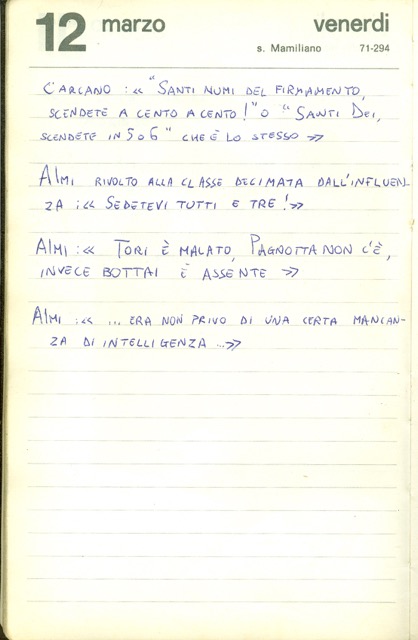 12 marzo venerdi
s. Mamiliano 71-294
CARCANO : « "SANTI NUMI DEL FIRMAMENTO,
SCENDETE A CENTO A CENTO!" O "SANTI DEI,
SCENDETE IN 5 O 6" CHE È LO STESSO »
ALMI RIVOLTO ALLA CLASSE DECIMATA DALL'INFLUEN-
ZA : « SEDETEVI TUTTI E TRE! »
ALMI : « TORI È MALATO, PAGNOTTA NON C'È,
INVECE BOTTAI È ASSENTE »
ALMI : « ... ERA NON PRIVO DI UNA CERTA MANCAN-
ZA DI INTELLIGENZA ... »